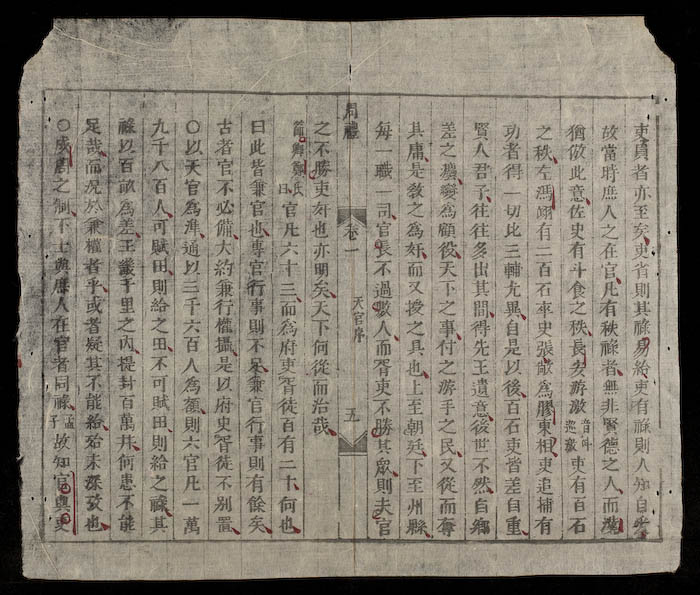 吏員者亦至矣吏省則其祿易給吏有祿則人知自愛
故當時庶人之在官凡有秩祿者無非賢德之人而漢
猶倣此意佐史有斗食之秩長安游徼音叫巡徼吏有百石
之秩左馮翊有二百石卒史張敞為膠東相吏追捕有
功者得一切比三輔尤異自是以後百石吏皆差自重
賢人君子往往多出其間得先王遺意後世不然自鄉
差之灋變為顧役天下之事付之游手之民又從而奪
其庸是敎之為奸而又授之具也上至朝廷下至州縣
每一職一司官長不過數人而胥吏不勝其眾則夫官
周禮 卷一 天官序 五
之不勝吏奸也亦明矣天下何從而治哉
鄭氏曰官凡六十三而為府吏胥徒百有二十何也
曰此皆兼官也專官行事則不足兼官行事則有餘矣
古者官不必備大約兼行權攝是以府史胥徒不別置
○以天官為準通以三千六百人為額則六官凡一萬
九千八百人可賦田則給之田不可賦田則給之祿其
祿以百畝為差王畿千里之內提封百萬井何患不能
足哉而况於兼權者乎或者疑其不能給殆未深攷也
○成周之制下士與庶人在官者同祿孟子故知官與吏